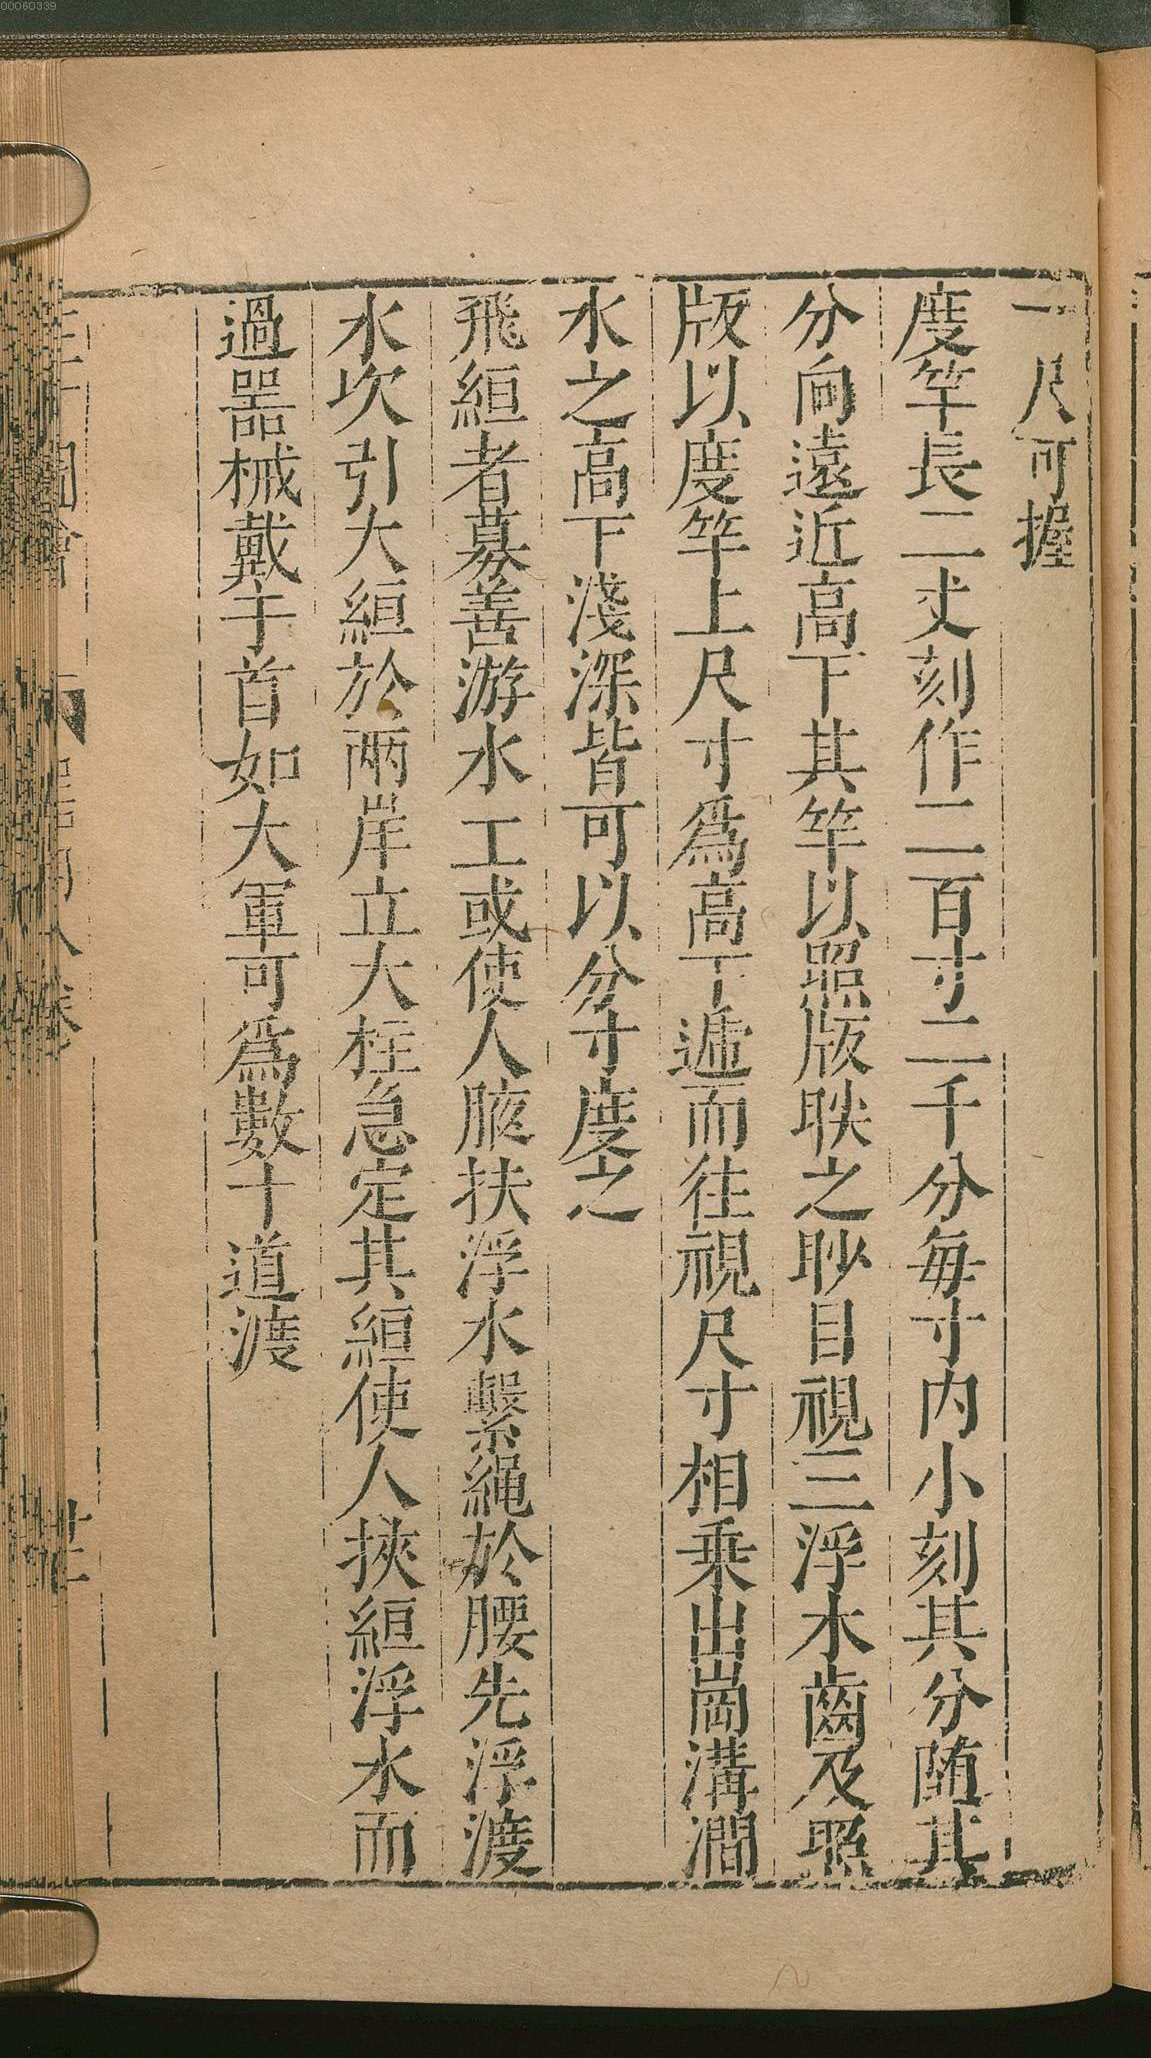 00060339
一尺可握
度竿長二丈刻作二百寸二千分每寸内小刻其分随其
分向遠近高下其竿以照版映之眇目視三浮木齒及照
版以度竿上尺寸爲高下遞而往視尺寸相乗出崗溝澗
水之高下淺深皆可以分寸度之
飛絙者募善游水工或使人腋扶浮水繫繩於腰先浮渡
水次引大絙於兩岸立大柱急定其絙使人挾絙浮水而
過噐械戴于首如大軍可爲數十道渡